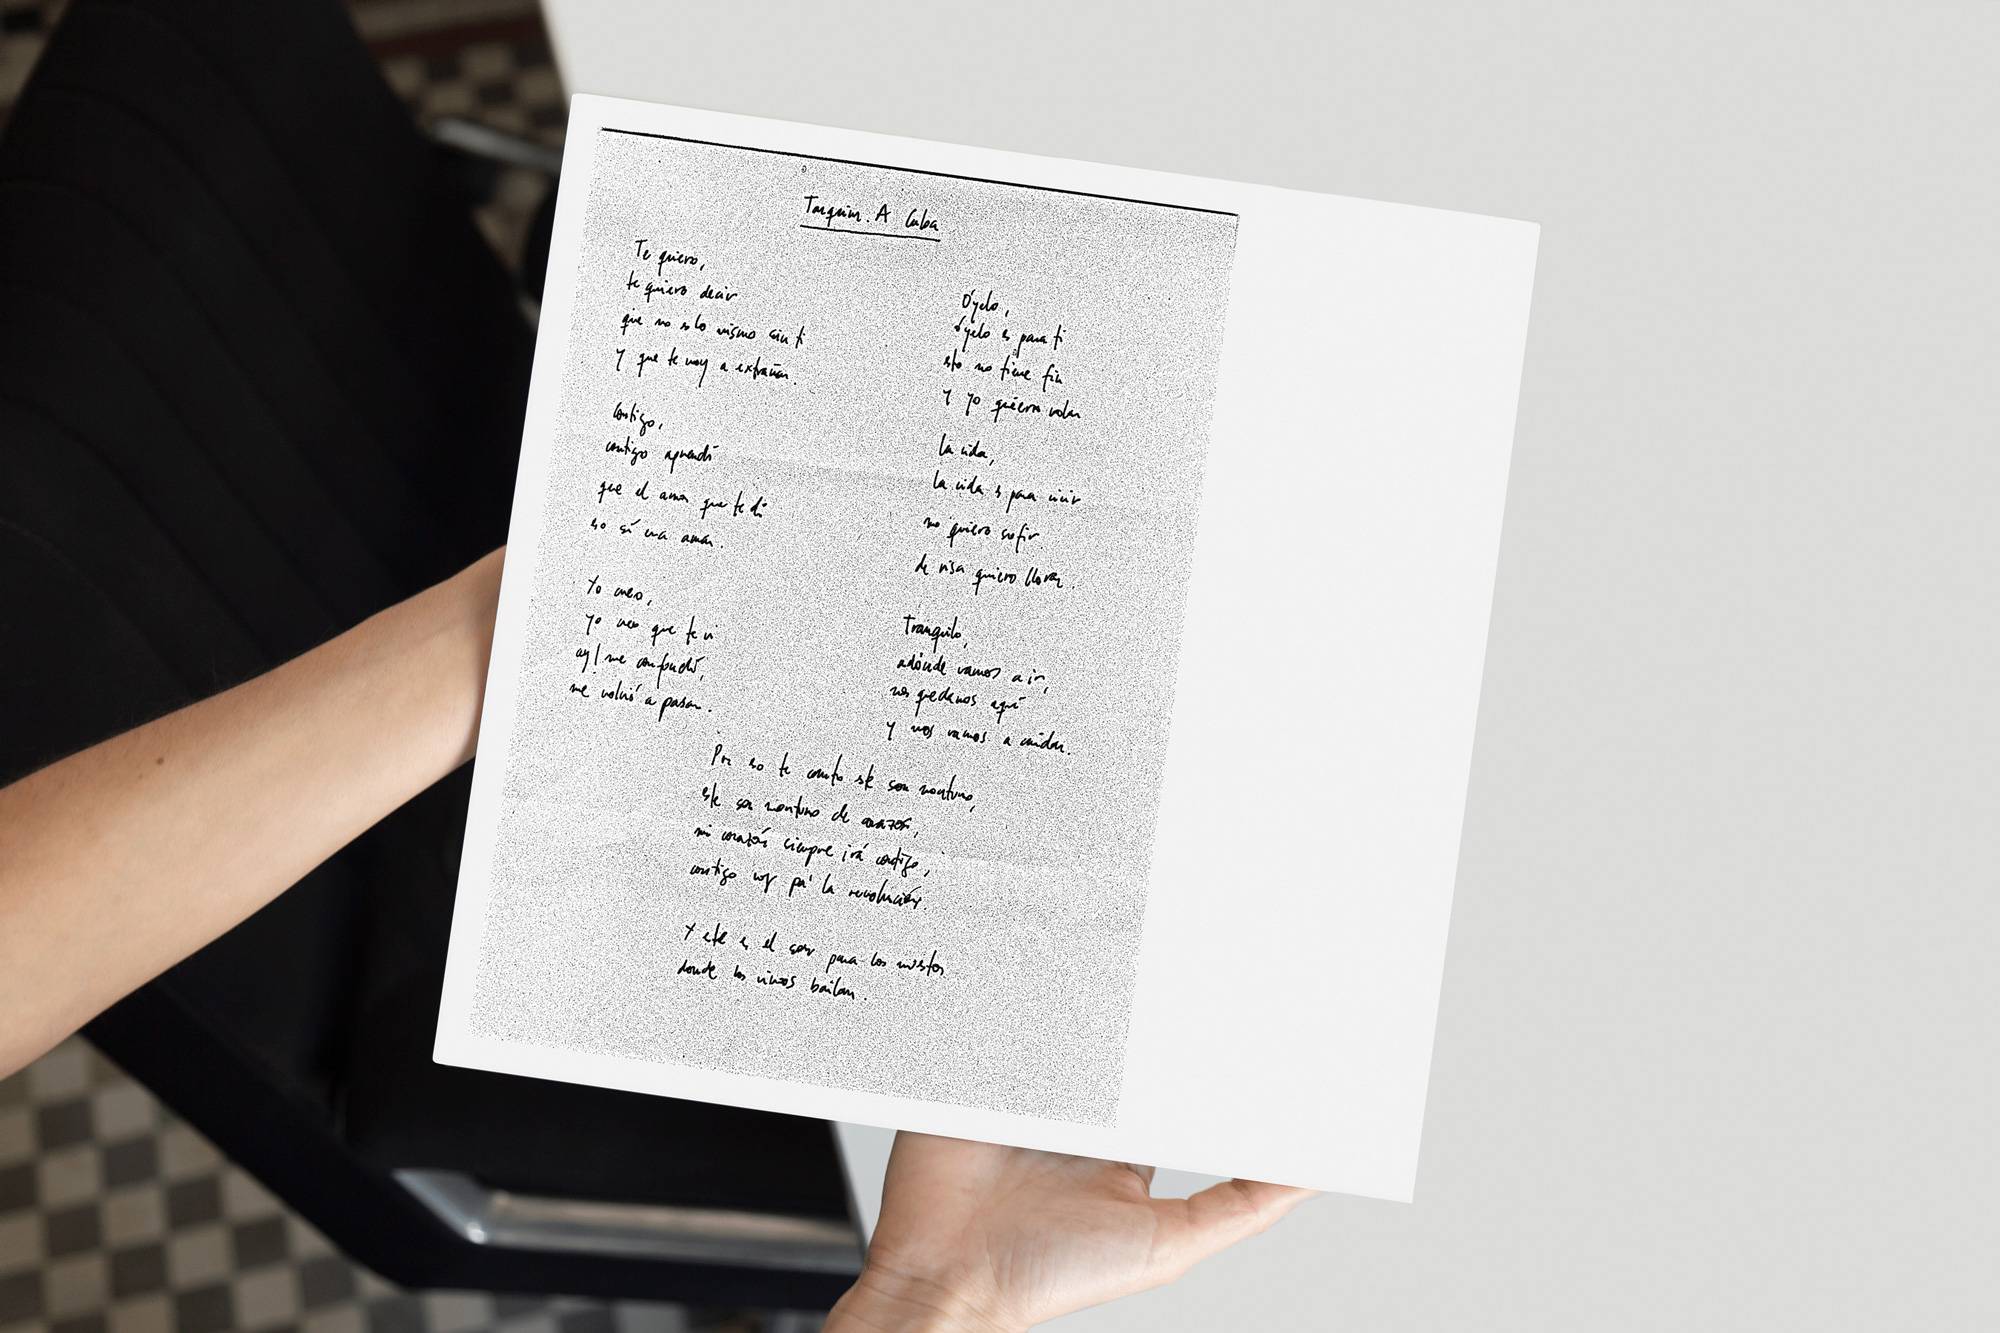 Tarquim. A Cuba
Te quiero,
te quiero decir
que no es lo mismo sin ti
y que te voy a extrañar.
Contigo,
contigo aprendí
que el amor que te di
eso sí era amar.
Yo creo,
yo creo que te vi
ay! me confundí,
me volvió a pasar.
Óyelo,
óyelo es para ti
esto no tiene fin
y yo quiero volar
La vida,
la vida es para vivir
no quiero sufrir
de risa quiero llorar.
Tranquilo,
adónde vamos a ir,
nos quedamos aquí
y nos vamos a cuidar.
Por eso te canto este son montuno,
este son montuno de corazón,
mi corazón siempre irá contigo,
contigo voy pa' la revolución.
Y este es el son para los muertos
donde los vivos bailan.